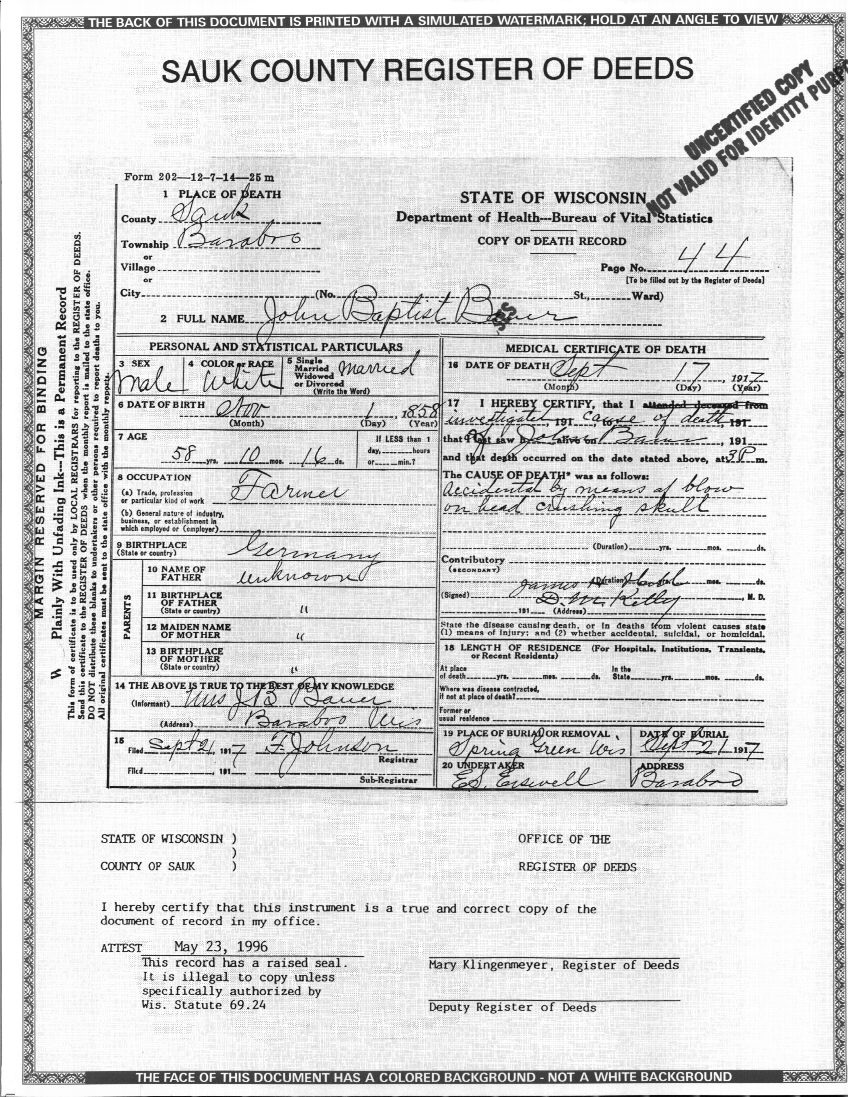 THE BACK OF THIS DOCUMENT IS PRINTED WITH A SIMULATED WATERMARK; HOLD AT AN ANGLE TO VIEW
SAUK COUNTY REGISTER OF DEEDS
UNCERTIFIED COPY
NOT VALID FOR IDENTITY PURP
Form 202—12-7-14—25 m
1 PLACE OF DEATH
County Sauk
Township Baraboo
or
Village
or
City (No. St., Ward)
STATE OF WISCONSIN
Department of Health—Bureau of Vital Statistics
COPY OF DEATH RECORD
Page No. 44
[To be filled out by the Register of Deeds]
2 FULL NAME John Baptist Bauer
MARGIN RESERVED FOR BINDING
Plainly With Unfading Ink—This is a Permanent Record
This form of certificate is to be used only by LOCAL REGISTRARS for reporting to the REGISTER OF DEEDS.
Send this certificate to the REGISTER OF DEEDS when the monthly report is mailed to the state office.
DO NOT distribute these blanks to undertakers or other persons required to report deaths to you.
All original certificates must be sent to the state office with the monthly report.
PERSONAL AND STATISTICAL PARTICULARS
3 SEX
Male
4 COLOR or RACE
White
5 Single
Married
Widowed
or Divorced
(Write the Word)
Married
6 DATE OF BIRTH Nov 1, 1858
(Month) (Day) (Year)
7 AGE
58 yrs. 10 mos. 16 ds.
If LESS than 1
day, hours
or min.?
8 OCCUPATION
(a) Trade, profession
or particular kind of work
Farmer
(b) General nature of industry,
business, or establishment in
which employed or (employer)
9 BIRTHPLACE
(State or country)
Germany
PARENTS
10 NAME OF
FATHER
unknown
11 BIRTHPLACE
OF FATHER
(State or country)
"
12 MAIDEN NAME
OF MOTHER
"
13 BIRTHPLACE
OF MOTHER
(State or country)
"
14 THE ABOVE IS TRUE TO THE BEST OF MY KNOWLEDGE
(Informant) Mrs J B Bauer
(Address) Baraboo Wis
15
Filed Sept 21, 1917 F Johnson
Registrar
Filed 191
Sub-Registrar
MEDICAL CERTIFICATE OF DEATH
16 DATE OF DEATH Sept 17, 1917
(Month) (Day) (Year)
17 I HEREBY CERTIFY, that I attended deceased from
investigated 191 cause of death 191
that I last saw h alive on John Bauer, 191
and that death occurred on the date stated above, at 3P m.
The CAUSE OF DEATH* was as follows:
Accidental by means of blow
on head crushing skull
(Duration) yrs. mos. ds.
Contributory
(SECONDARY)
(Duration) yrs. mos. ds.
(Signed) James H , M. D.
D. M. Kelly
191 (Address)
State the disease causing death, or in deaths from violent causes state
(1) means of injury; and (2) whether accidental, suicidal, or homicidal.
18 LENGTH OF RESIDENCE (For Hospitals, Institutions, Transients,
or Recent Residents)
At place
of death yrs. mos. ds.
In the
State yrs. mos. ds.
Where was disease contracted,
if not at place of death?
Former or
usual residence
19 PLACE OF BURIAL OR REMOVAL
Spring Green Wis
DATE OF BURIAL
Sept 21 1917
20 UNDERTAKER
ADDRESS
Baraboo
STATE OF WISCONSIN )
)
COUNTY OF SAUK )
OFFICE OF THE
REGISTER OF DEEDS
I hereby certify that this instrument is a true and correct copy of the
document of record in my office.
ATTEST May 23, 1996
This record has a raised seal.
It is illegal to copy unless
specifically authorized by
Wis. Statute 69.24
Mary Klingenmeyer, Register of Deeds
Deputy Register of Deeds
THE FACE OF THIS DOCUMENT HAS A COLORED BACKGROUND - NOT A WHITE BACKGROUND